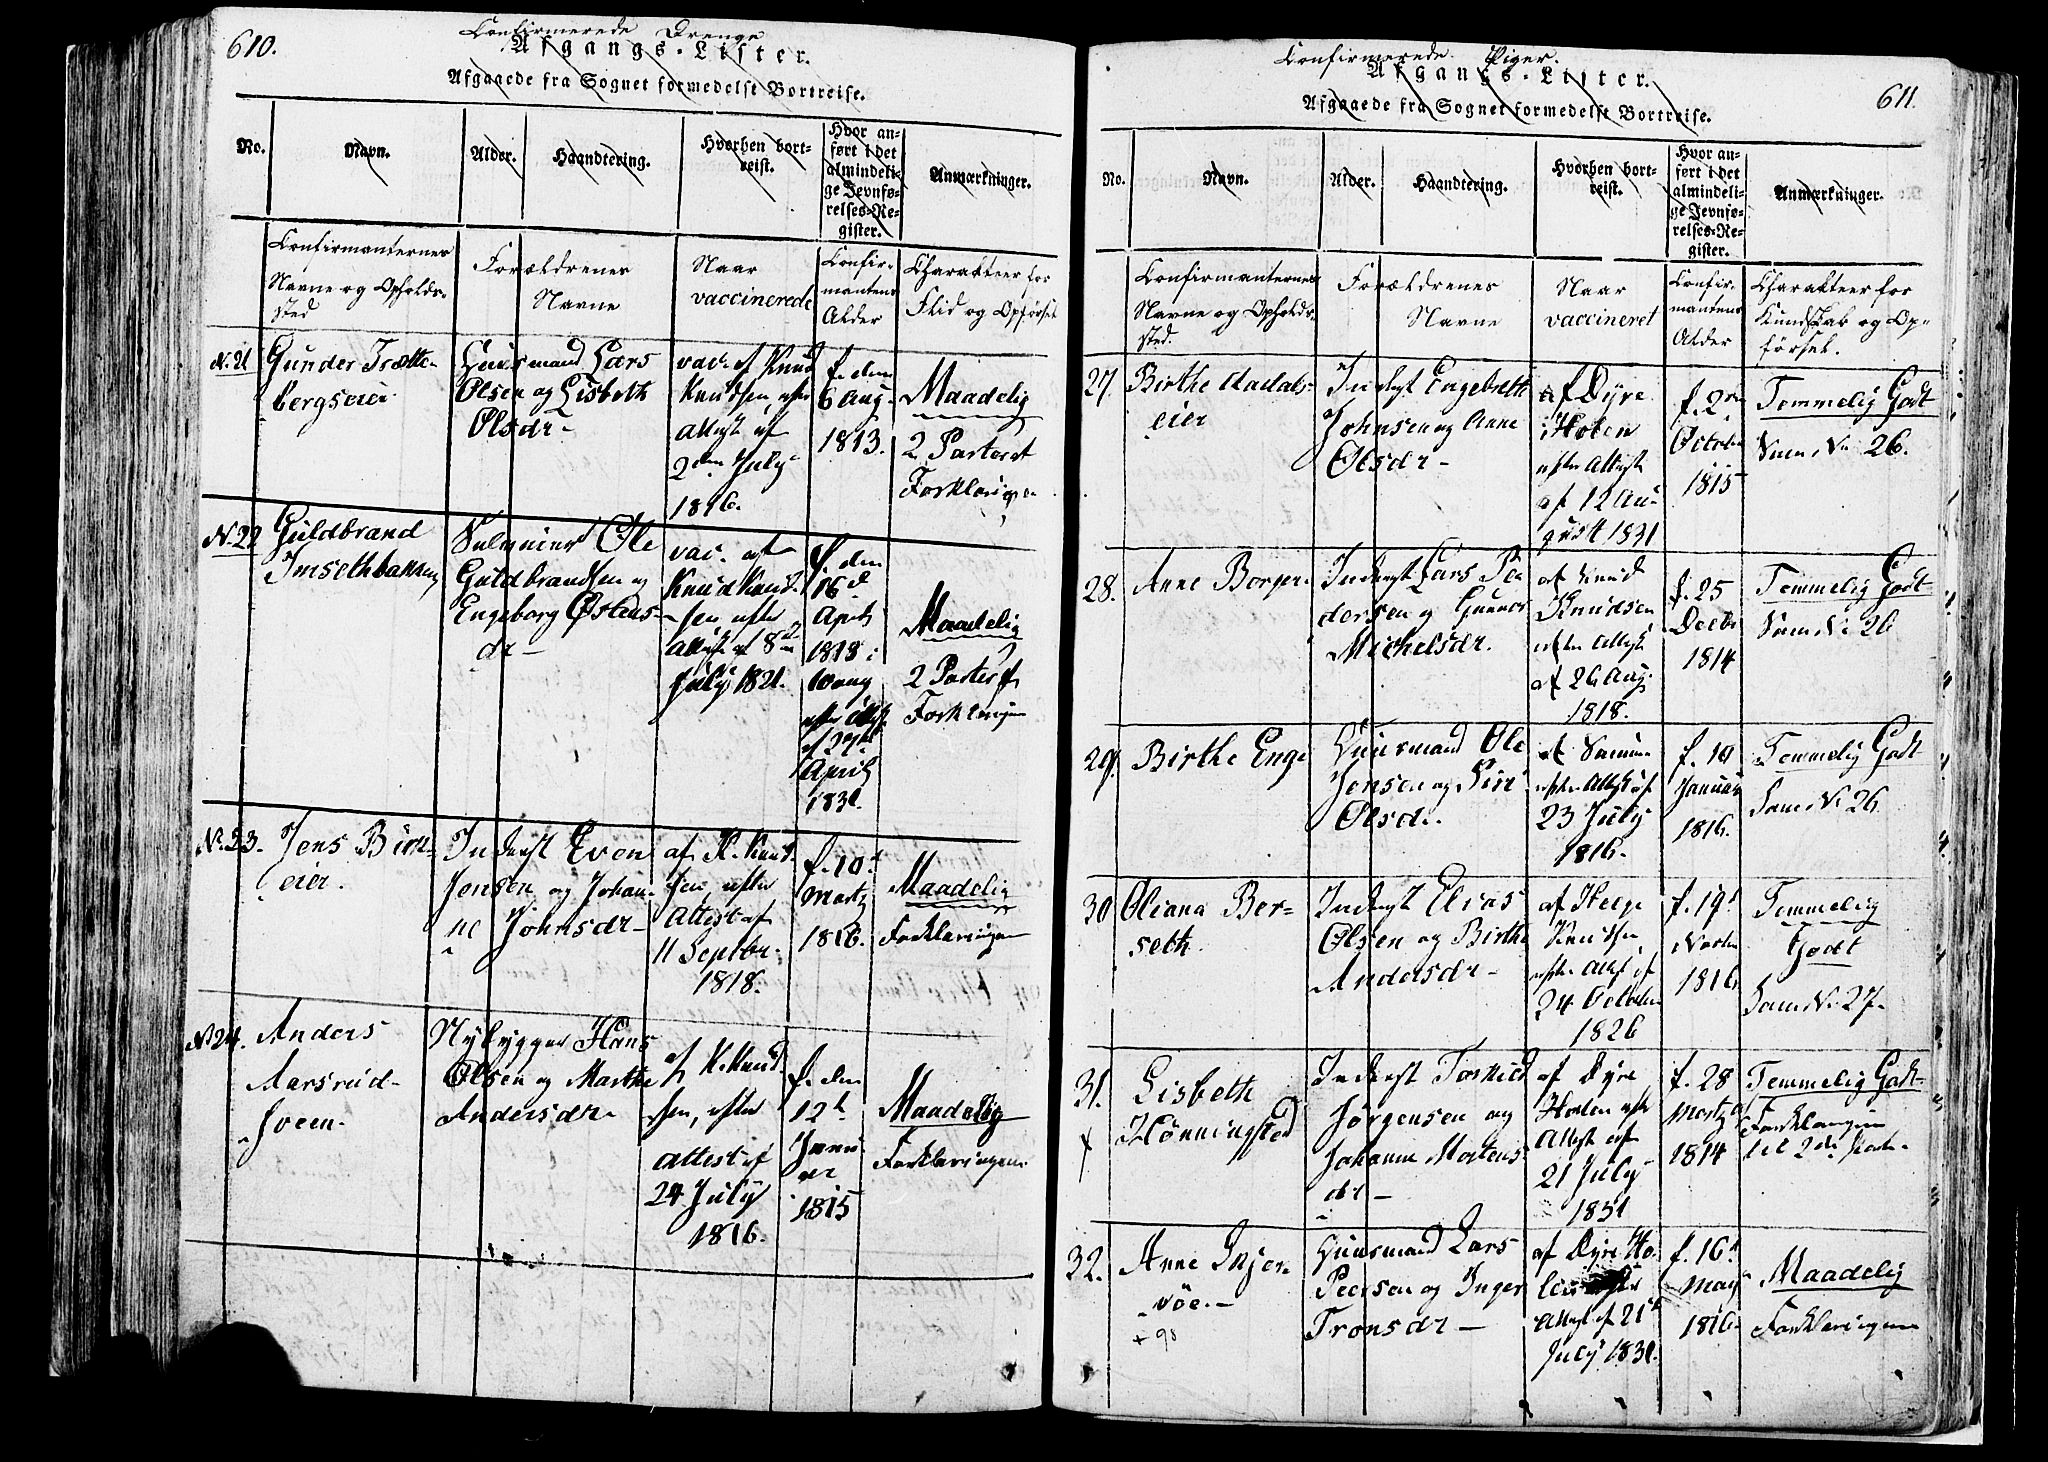 610.
Confirmerede Drenge
Afgangs-Lister.
Afgaaede fra Sognet formedelst Bortreise.
No.
Navn.
Alder.
Haandtering.
Hvorhen bort-
reist.
Hvor an-
ført i det
almindeli-
ge Jevnfø-
relses-Re-
gister.
Anmærkninger.
Confirmanternes
Navne og Opholds-
sted
Forældrenes
Navne
Naar
vaccinerede
Confir-
mantens
Alder
Charakteer for
Flid og Opførsel
N. 21
Gunder Trætte-
bergseier
Huusmand Lars
Olsen og Lisbeth
Olsdr-
vac. af Knud
Knudsen, efter
attest af
2den July
1816.
f. den
6 Aug.
1813.
Maadelig
2 Parter af
Forklaringen
N. 22
Guldbrand
Imsethbakken
Ole
Guldbrandsen og
Engeborg Østens-
dr-
vac. af
Knud Knud-
sen efter
attest af 8de
July 1821.
f. den
16d
April
1818 i
efter attest
af 27de
April
1831.
Maadelig
2 Parter af
Forklaringen
N. 23.
Jens Birk-
eier.
Inderst Even
Jensen og Johan-
ne Johnsdr-
af K. Knud-
sen, efter
Attest af
11 Septbr.
1818.
f. 10d
Martz
1816.
Maadelig
Forklaringen
N. 24.
Anders
Aarsrud-
sveen.
Nybygger Hans
Olsen og Marthe
Andersdr-
af K. Knud-
sen, efter
attest af
24 July
1816.
f. den
12t
Janu-
ar
1815
Maadelig
Forklaringen
611.
Confirmerede Piger.
Afgangs-Lister.
Afgaaede fra Sognet formedelst Bortreise.
No.
Navn.
Alder.
Haandtering.
Hvorhen bort-
reist.
Hvor an-
ført i det
almindeli-
ge Jevnfø-
relses-Re-
gister.
Anmærkninger.
Confirmanternes
Navne og Opholds-
sted.
Forældrenes
Navne
Naar
vaccineret
Confir-
mantens
Alder
Charakteer for
Kundskab og Op-
førsel.
27.
Birthe Aadals-
eier
Inderst Engebreth
Johnsen og Anne
Olsdr-
af Dyre
Holen
efter Attest
af 12 Au-
gust 1831
f. 2den
October
1815
Temmelig Godt
Som No 26.
28.
Anne Borger
Inderst Lars Pe-
dersen og Gunnor
Michelsdr.
af Knud
Knudsen
efter Attest
af 26 Aug.
1818.
f. 25
Decbr
1814
Temmelig Godt
Som No 26
29.
Birthe Enge
Huusmand Ole
Jensen og Siri
Olsdr.
af Samme
efter Attest af
23 July
1816.
f. 10
Januar
1816.
Temmelig Godt
Som No 26
30
Oliana Ber-
seth.
Inderst Elias
Olsen og Birthe
Andersdr-
af Helge
Knudsen
efter Attest af
24 October
1826
f. 19d
Novbr
1816
Temmelig
Godt
Som No 27.
31.
Lisbeth
Hønningstad
Inderst Torkild
Jørgensen og
Johanne Mortens-
dr-
af Dyre
Holen efter
Attest af
21 July
1831
f. 28
Martz
1814
Temmelig Godt
Forklaringen
til 2den Part.
32.
Anne Skjer-
vøe.-
+ 98
Huusmand Lars
Peersen og Inger
Tronsdr-
af Dyre Ho-
len efter
Attest af 21d
July 1831.
f. 16d
May
1816.
Maadelig
Forklaringen